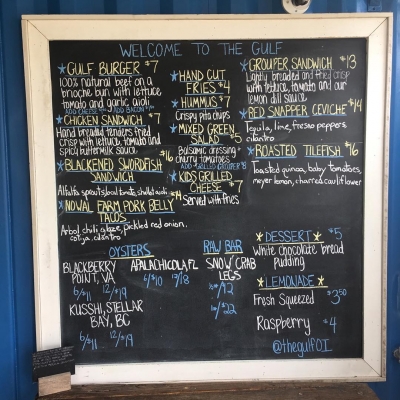 WELCOME TO THE GULF
GULF BURGER $7
100% natural beef on a
brioche bun with lettuce,
tomato and garlic aioli
ADD CHEESE ADD BACON
CHICKEN SANDWICH $7
Hand breaded tenders fried
crisp with lettuce, tomato and
spicy buttermilk sauce
BLACKENED SWORDFISH
SANDWICH
Alfalfa sprouts, local tomato, shallot aioli
NOWAL FARM PORK BELLY $14
TACOS
Arbol chili glaze, pickled red onion,
cotija, cilantro
HAND CUT
FRIES $4
HUMMUS $7
Crispy pita chips
MIXED GREEN
SALAD $5
Balsamic dressing +
cherry tomatoes
ADD GRILLED
KIDS GRILLED
CHEESE $7
Served with fries
GROUPER SANDWICH $13
Lightly breaded and fried crisp
with lettuce, tomato and our
lemon dill sauce
RED SNAPPER CEVICHE $14
Tequila, lime, fresno peppers,
cilantro
ROASTED TILEFISH $16
Toasted quinoa, baby tomatoes,
meyer lemon, charred cauliflower
OYSTERS
BLACKBERRY
POINT, VA
6/$11 12/$19
KUSSHI, STELLAR
BAY, BC
6/$11 12/$19
APALACHICOLA, FL
6/$10 9/18
RAW BAR
SNOW CRAB
LEGS
1/2#/12
1#/$22
DESSERT $5
White chocolate bread
pudding
LEMONADE
Fresh Squeezed $3.50
Raspberry $4
@thegulfOI